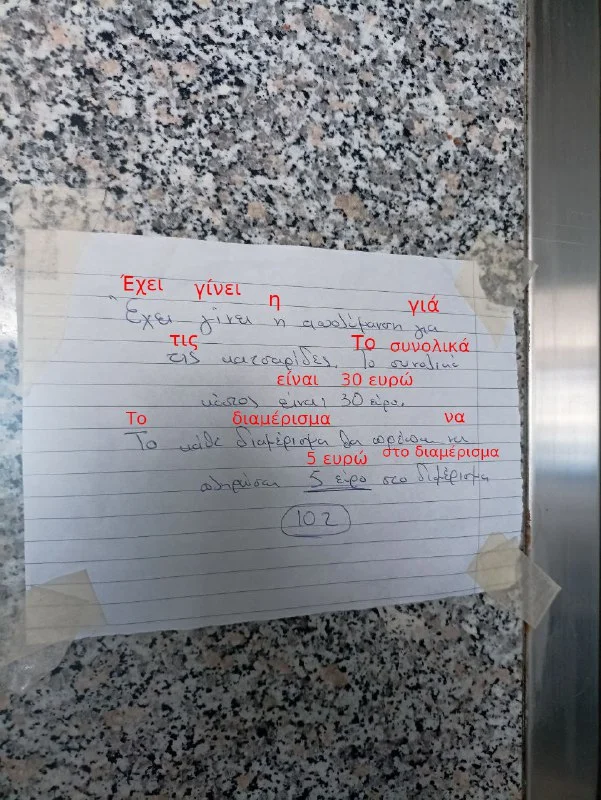 Έχει γίνει η γιά
Έχει γίνει η απολύμανση για
τις Το συνολικά
τις κατσαρίδες. Το συνολικό
είναι 30 ευρώ
κόστος είναι 30 ευρώ.
Το διαμέρισμα να
Το κάθε διαμέρισμα θα πρέπει να
5 ευρώ στο διαμέρισμα
πληρώσει 5 ευρώ στο διμέρισμα
102